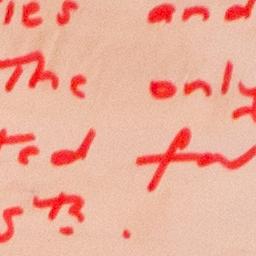 ies and
The only
ted for
5th.